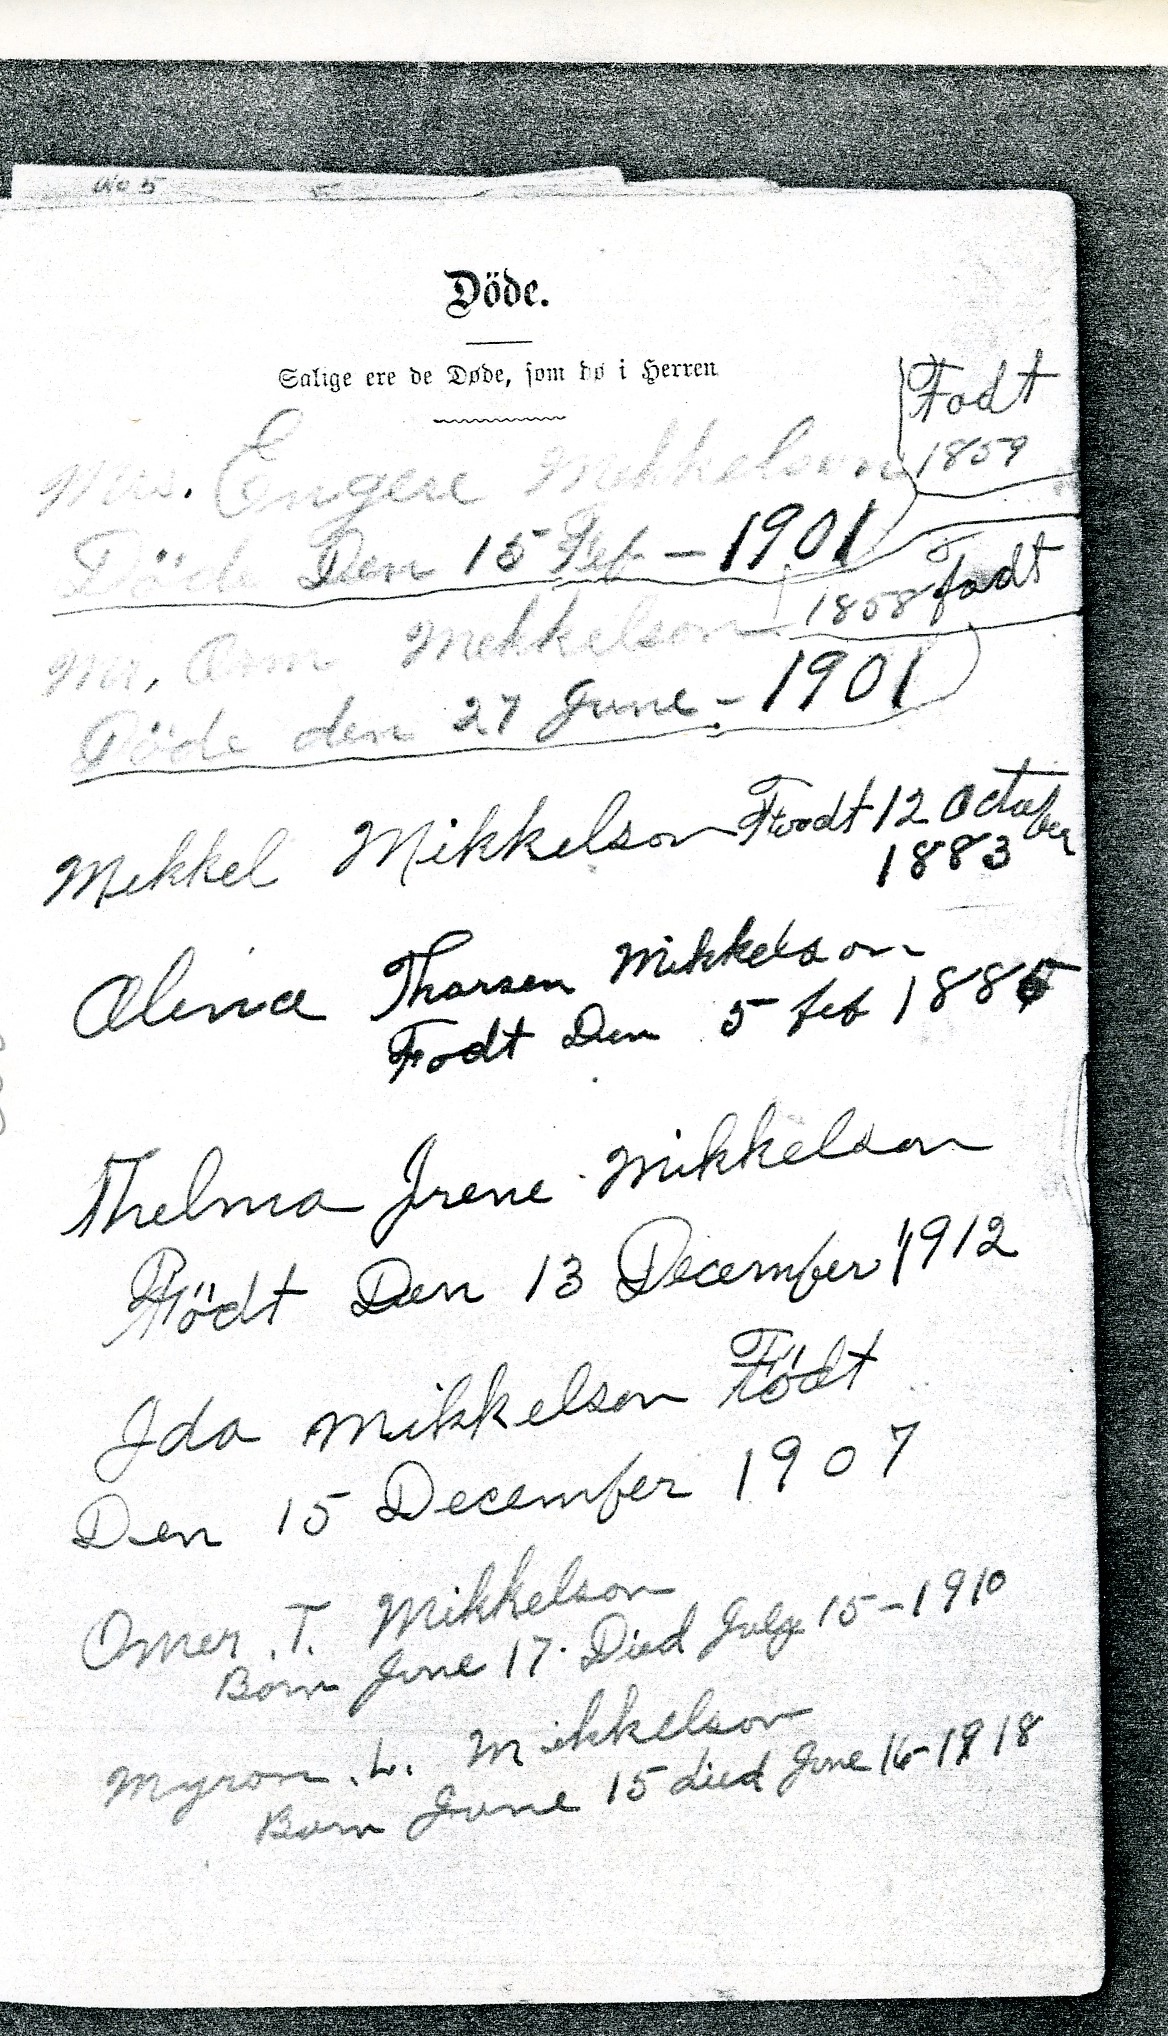 No 5
Döde.
Salige ere de Døde, som dø i Herren
Fodt
1859
Mrs. Engere Mekkelson
Döde Den 15 Feb – 1901
1858 fodt
Mr. Mekkelson
Döde den 27 June – 1901
Mekkel Mikkelson Fodt 12 October
1883
Olena Tharsen Mikkelson
Fodt Den 5 feb
Thelma Irene Mikkelson
Födt Den 13 December 1912
Ida Mikkelson Födt
Den 15 December 1907
Omer. T. Mikkelson
Born June 17. Died July 15 – 1910
Myron. L. Mikkelson
Born June 15 died June 16 - 1918